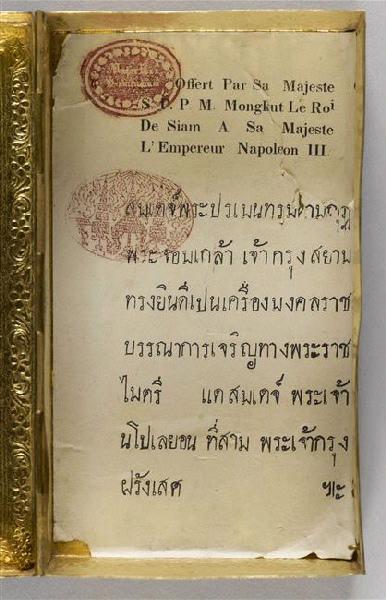 Offert Par Sa Majeste
S. P. P. M. Mongkut Le Roi
De Siam A Sa Majeste
L'Empereur Napoleon III.
สมเดจ์พระปรเมนทรมหามกุฎ
พระจอมเกล้า เจ้ากรุงสยาม
ทรงยินดีเปนเครื่องมงคลราช
บรรณาการเจริญทางพระราช
ไมตรี แดสมเดจ์ พระเจ้า
นโปเลยอน ที่สาม พระเจ้ากรุง
ฝรั่งเสศ ฯะ๛